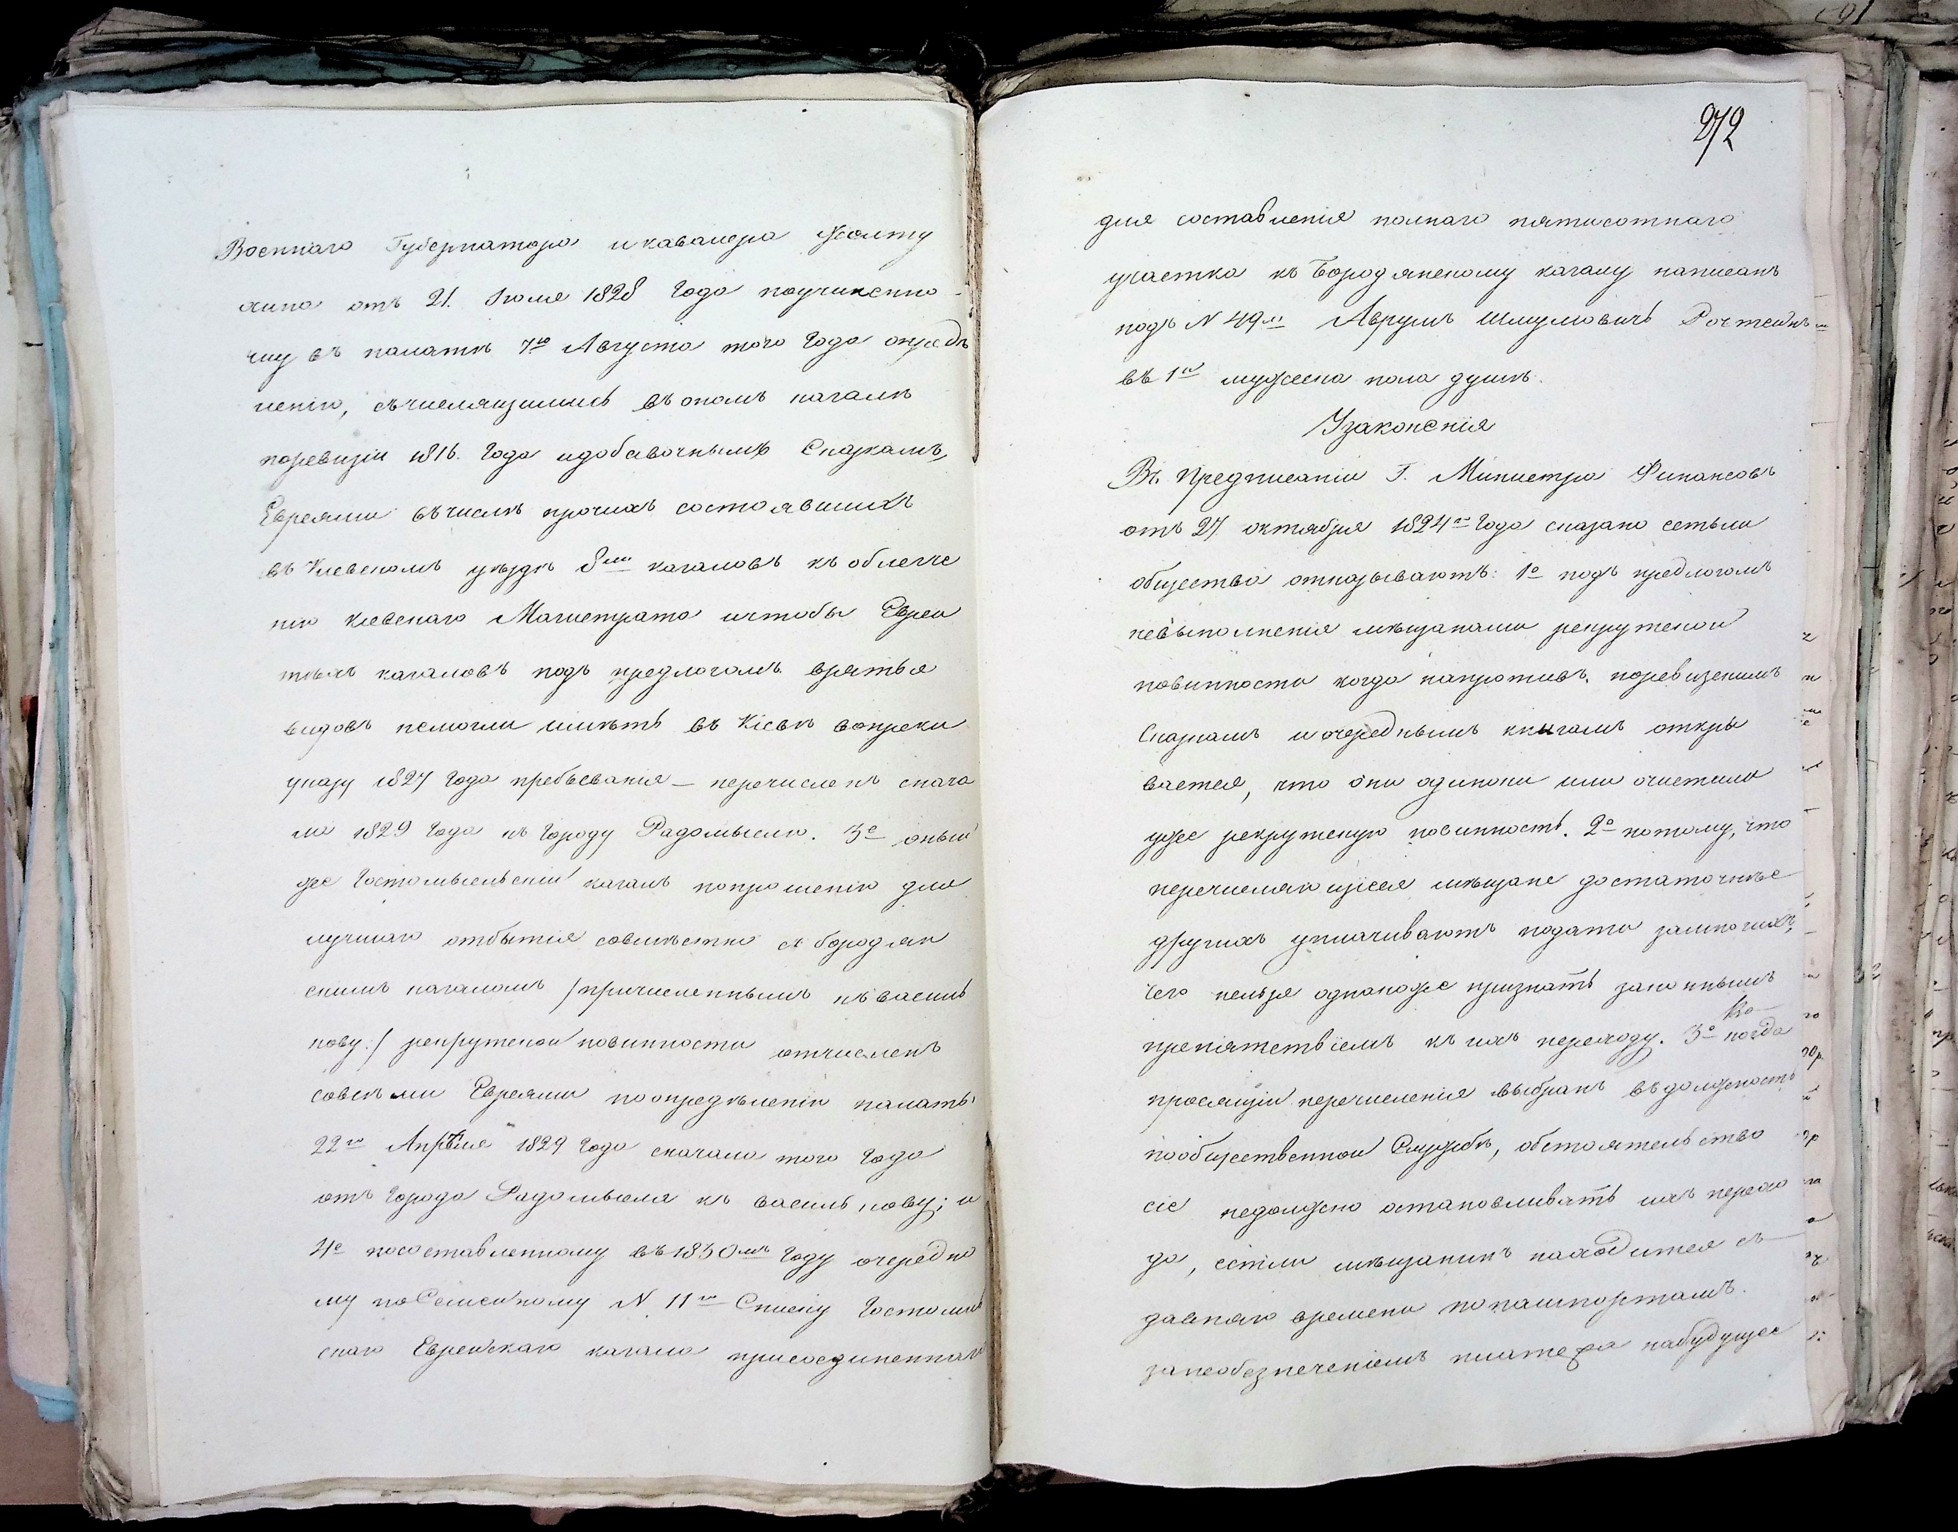 Военнаго Губернатора и кавалера Желту
хина отъ 21. Іюля 1828 Года поучиненно-
му въ палатѣ 7го Августа того Года опредѣ
ленію, съчислящимися въ ономъ кагалѣ
поревизіи 1816. Года идобавочнымъ Сказкамъ,
Евреями въчислѣ прочихъ состоявшихъ
въ Кіевскомъ уѣздѣ 8ми кагаловъ къ облегче
нію кіевскаго Магистрата ичтобы Евреи
тѣхъ кагаловъ подъ предлогомъ взятья
видовъ немогли имѣть въ Кіевѣ вопреки
указу 1827 Года пребыванія — перечисленъ снача
ла 1829 Года къ Городу Радомыслю. 3е оный
же Гостомысльскій кагалъ попрошенію для
лучшаго отбытія совмѣстно съ бородян
скимъ кагаломъ /причисленнымъ къ василь
кову:/ рекрутской повинности отчисленъ
совсѣми Евреями поопредѣленію палаты
22го Апрѣля 1829 Года сначала того Года
отъ Города Радомысля къ василькову; и
4е посоставленному въ 1830мъ Году очередно
му по Семейному N 11го Списку Гостомль
скаго Еврейскаго кагала присоединеннаго
272
для составленія полнаго пятисотнаго
участка къ Бородянскому кагалу написанъ
подъ N 49мъ Аврумъ Шмуловичъ Рохтейнъ
въ 1й мужеска пола душѣ.
Узаконенія
Въ Предписаніи Г. Министра Финансовъ
отъ 27 октября 1824го Года сказано естьли
общества отказываютъ: 1е подъ предлогомъ
невыполненія мѣщанами рекрутской
повинности когда напротивъ, поревизскимъ
Сказкамъ иочереднымъ книгамъ откры
вается, что они одиноки или очистили
уже рекрутскую повинность. 2е потому, что
перечисляющіеся мѣщане достаточнѣе
другихъ уплачиваютъ подати замногихъ,
чего нельзя однакоже признать законнымъ
препятствіемъ къ ихъ переходу. 3е когда
ко
просящій перечисленія выбранъ въдолжность
пообщественной Службѣ, обстоятельство
сіе недолжно остановливать ихъ перехо
да, естли мѣщанинъ находится съ
давняго времени попашпортамъ.
занеобезпеченіемъ платежа набудущее